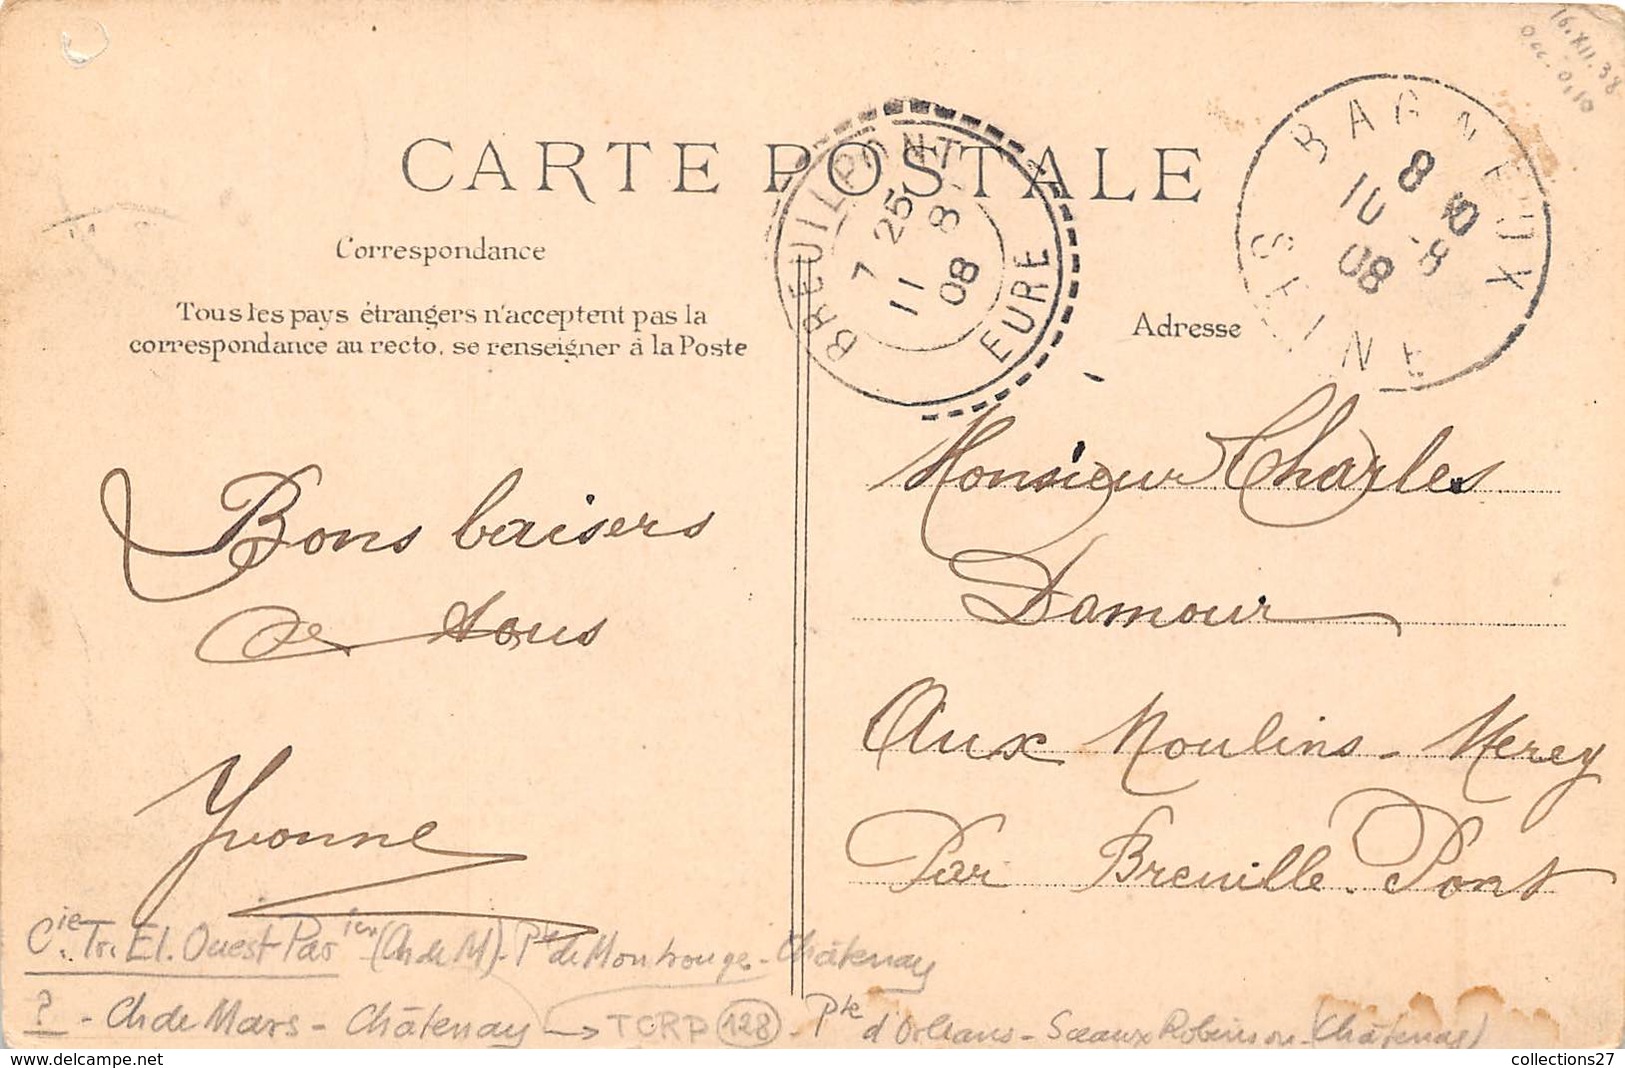 16.XII.38
occ. 0,10
CARTE POSTALE
BREUILPONT
7 25
11 8
08
EURE
BAGNEUX
8 50
10 -8
08
SEINE
Correspondance
Tous les pays étrangers n'acceptent pas la
correspondance au recto, se renseigner à la Poste
Adresse
Bons baisers
a tous
Yvonne
Monsieur Charles
Damour
Aux Moulins - Merey
Par Breuille-Pont
Cie Tr. El. Ouest-Parien (Ch de M) - Pte de Montrouge - Châtenay
? - Ch de Mars - Châtenay → TCRP 128 - Pte d'Orléans - Sceaux Robinson (Châtenay)
collections27